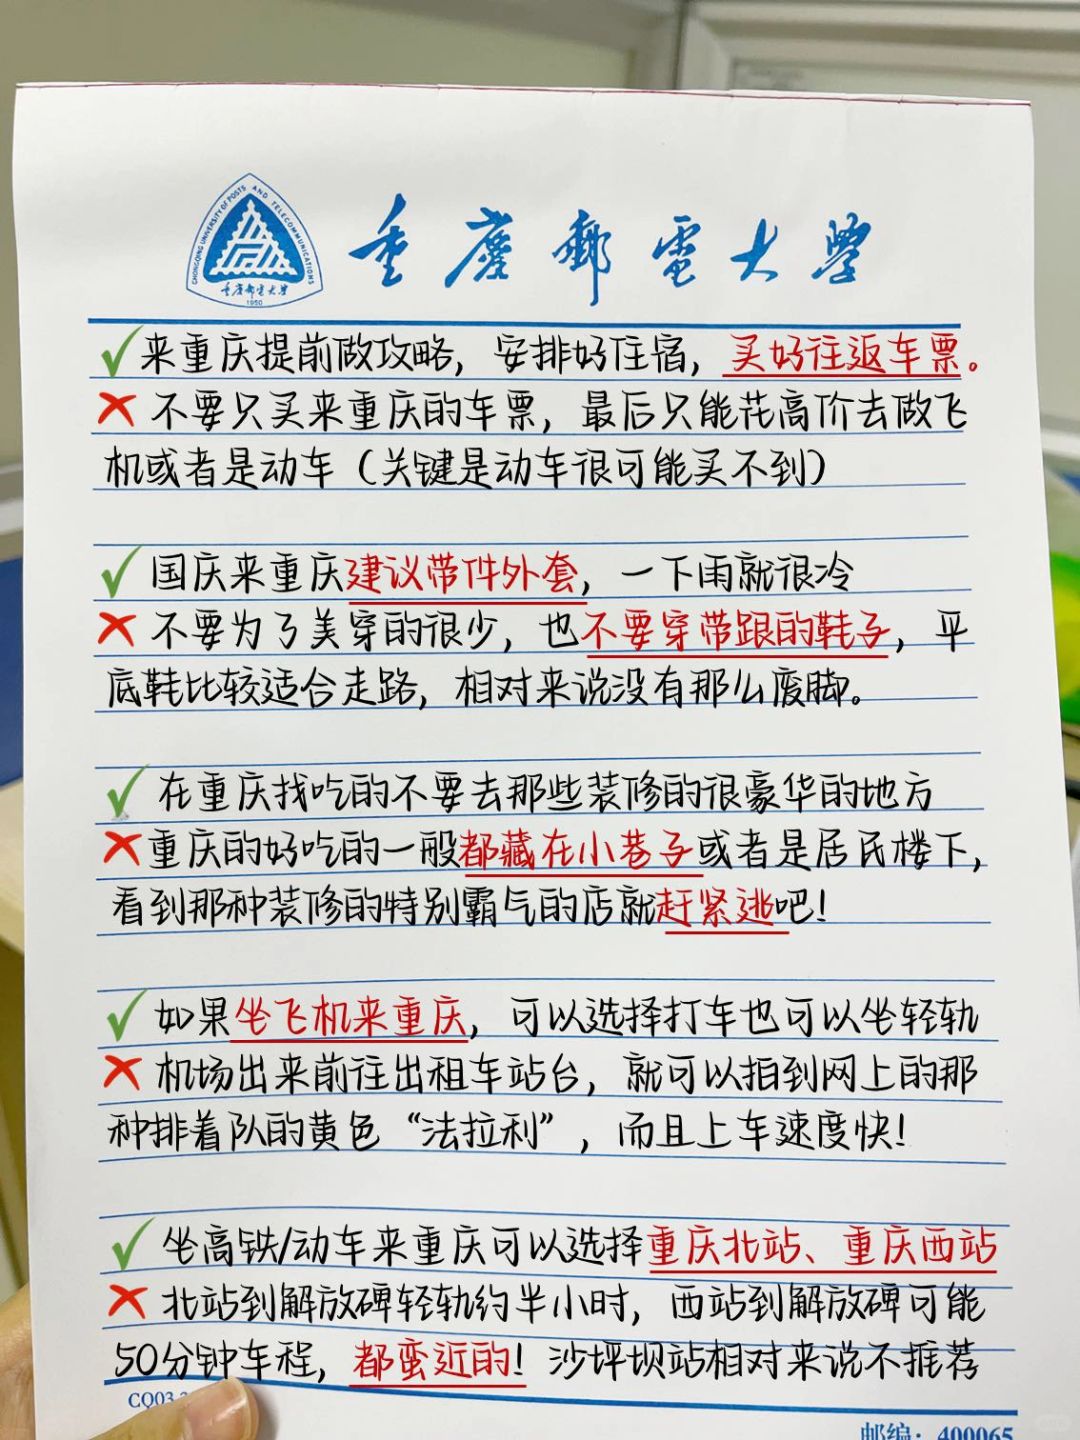 CHONGQING UNIVERSITY OF POSTS AND TELECOMMUNICATIONS
重庆邮电大学
1950
重慶郵電大學
✓来重庆提前做攻略，安排好住宿，买好往返车票。
✗不要只买来重庆的车票，最后只能花高价去做飞
机或者是动车（关键是动车很可能买不到）
✓国庆来重庆建议带件外套，一下雨就很冷
✗不要为了美穿的很少，也不要穿带跟的鞋子，平
底鞋比较适合走路，相对来说没有那么废脚。
✓在重庆找吃的不要去那些装修的很豪华的地方
✗重庆的好吃的一般都藏在小巷子或者是居民楼下，
看到那种装修的特别霸气的店就赶紧逃吧！
✓如果坐飞机来重庆，可以选择打车也可以坐轻轨
✗机场出来前往出租车站台，就可以拍到网上的那
种排着队的黄色“法拉利”，而且上车速度快！
✓坐高铁/动车来重庆可以选择重庆北站、重庆西站
✗北站到解放碑轻轨约半小时，西站到解放碑可能
50分钟车程，都蛮近的！沙坪坝站相对来说不推荐
CQ03
邮编：400065